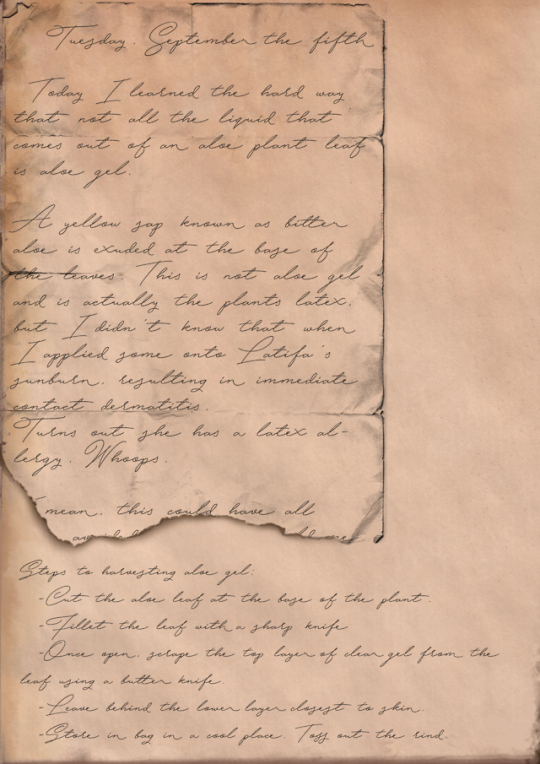 Tuesday, September the fifth
Today I learned the hard way
that not all the liquid that
comes out of an aloe plant leaf
is aloe gel.
A yellow sap known as bitter
aloe is exuded at the base of
the leaves. This is not aloe gel
and is actually the plants latex,
but I didn't know that when
I applied some onto Latifa's
sunburn, resulting in immediate
contact dermatitis.
Turns out she has a latex al-
lergy. Whoops.
mean, this could have all
Steps to harvesting aloe gel:
-Cut the aloe leaf at the base of the plant.
-Fillet the leaf with a sharp knife
-Once open, scrape the top layer of clear gel from the
leaf using a butter knife.
-Leave behind the lower layer closest to skin.
-Store in bag in a cool place. Toss out the rind.